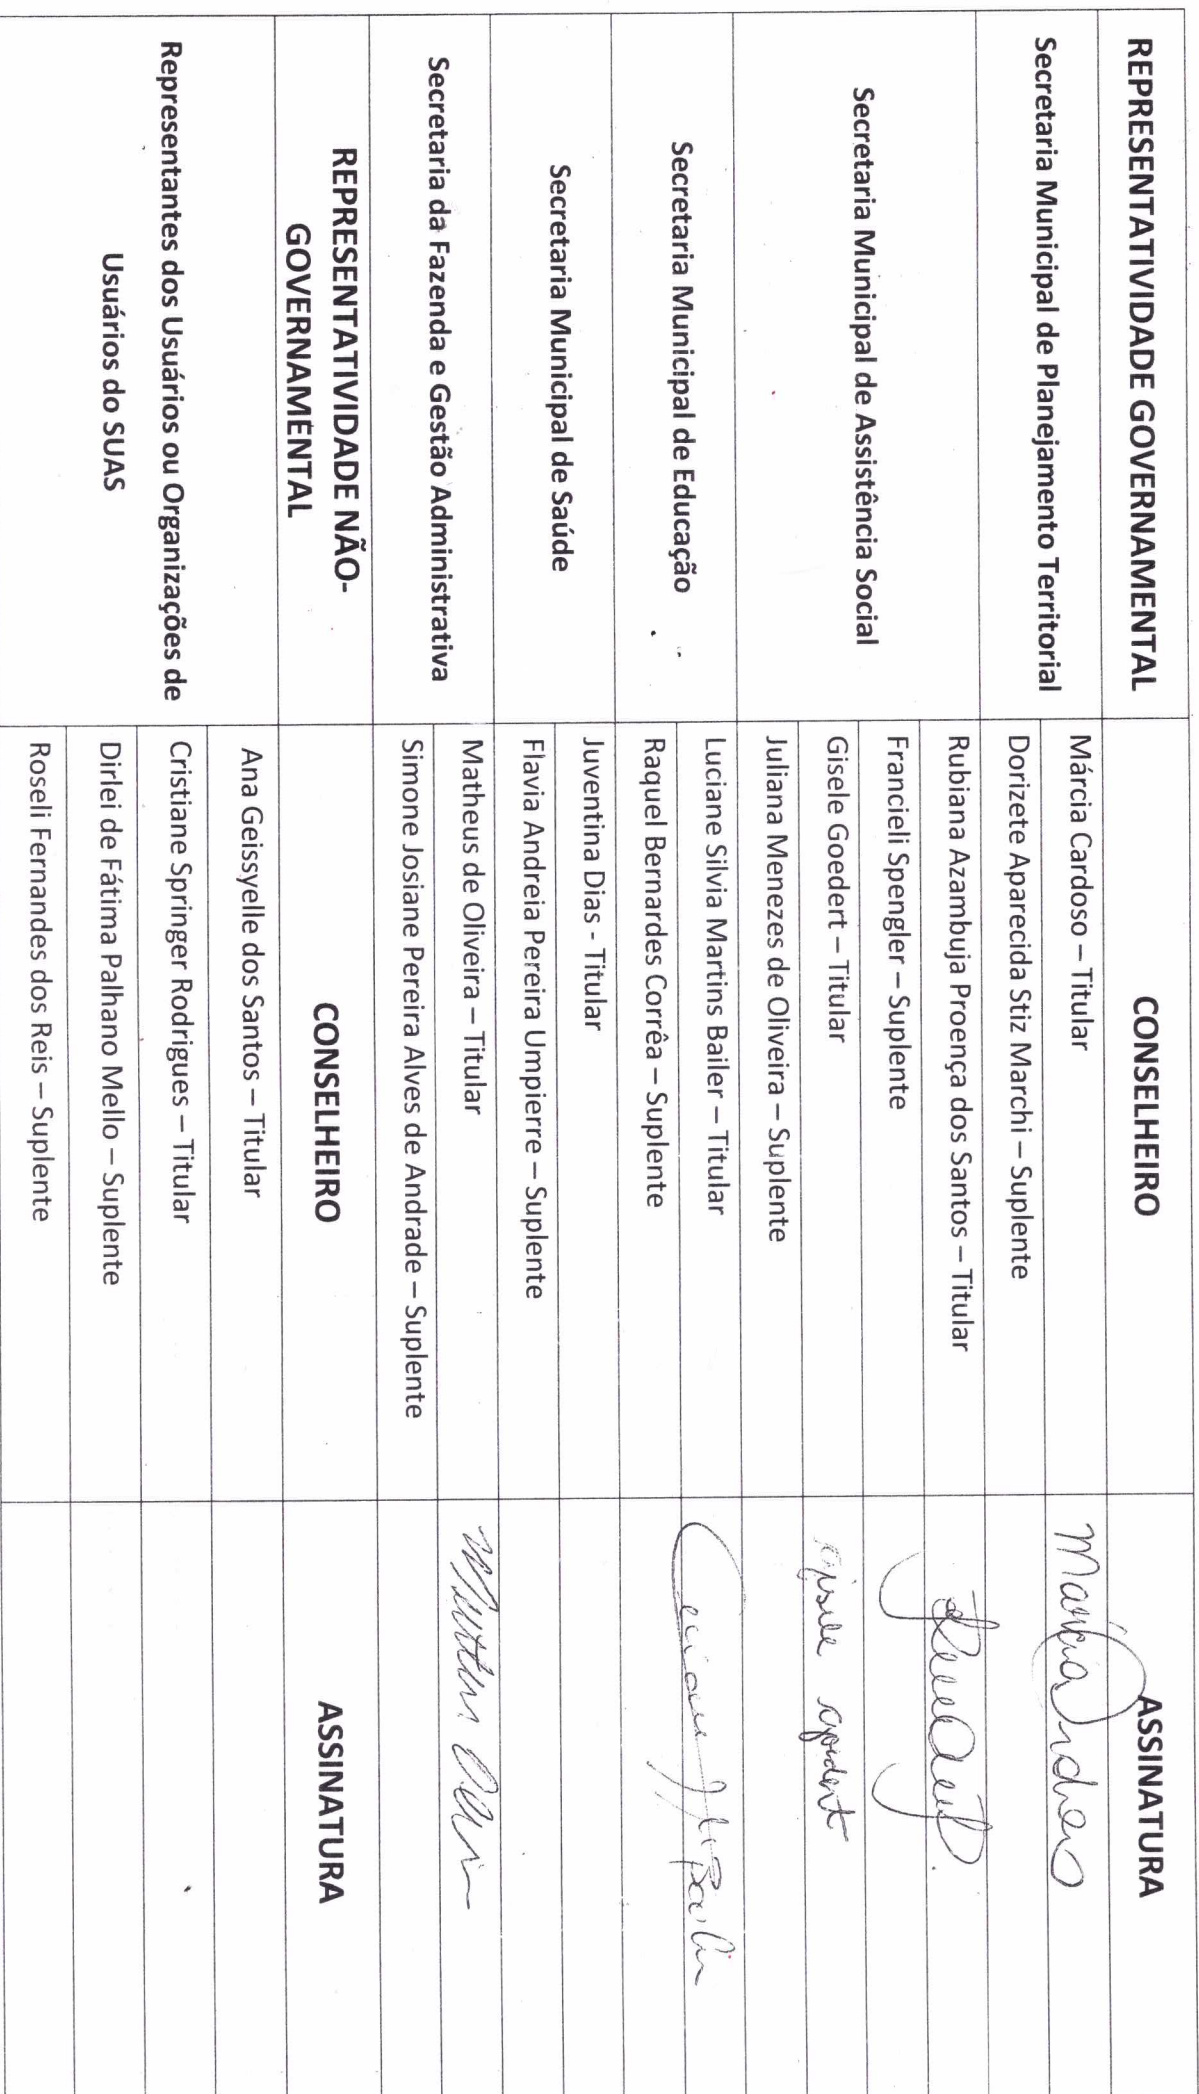 REPRESENTATIVIDADE GOVERNAMENTAL CONSELHEIRO ASSINATURA
Secretaria Municipal de Planejamento Territorial
Márcia Cardoso – Titular
Dorizete Aparecida Stiz Marchi – Suplente
Secretaria Municipal de Assistência Social
Rubiana Azambuja Proença dos Santos – Titular
Francieli Spengler – Suplente
Gisele Goedert – Titular
Juliana Menezes de Oliveira – Suplente
Secretaria Municipal de Educação
Luciane Silvia Martins Bailer – Titular
Raquel Bernardes Corrêa – Suplente
Secretaria Municipal de Saúde
Juventina Dias - Titular
Flavia Andreia Pereira Umpierre – Suplente
Secretaria da Fazenda e Gestão Administrativa
Matheus de Oliveira – Titular
Simone Josiane Pereira Alves de Andrade – Suplente
REPRESENTATIVIDADE NÃO-
GOVERNAMENTAL
CONSELHEIRO ASSINATURA
Representantes dos Usuários ou Organizações de
Usuários do SUAS
Ana Geissyelle dos Santos – Titular
Cristiane Springer Rodrigues – Titular
Dirlei de Fátima Palhano Mello – Suplente
Roseli Fernandes dos Reis – Suplente